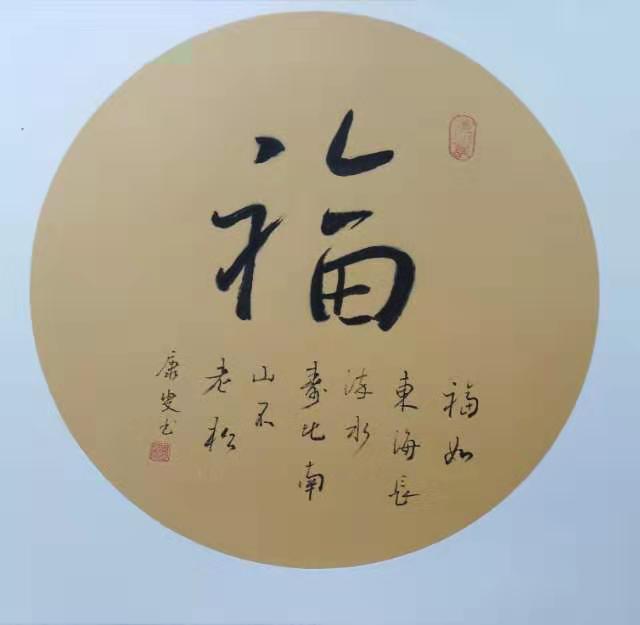 福
福如
東海長
流水
壽比南
山不
老松
康叟书